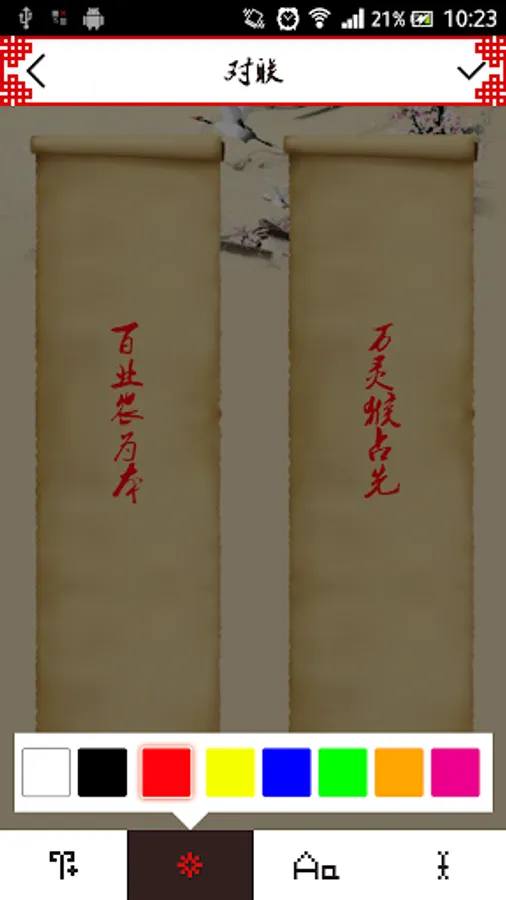 21% 10:23
对联
百业农为本
万灵猴占先
Aa